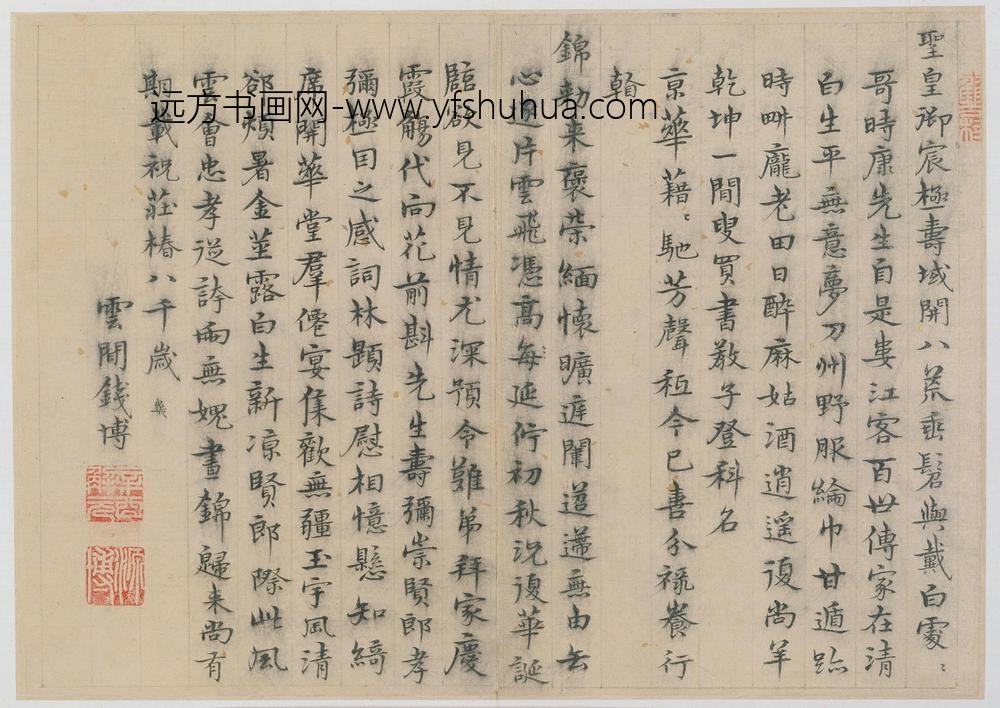 聖皇御宸極壽域開八荒垂髫與戴白處〻
哥時康先生自是婁江客百世傳家在清
白生平無意夢刀州野服綸巾甘遁跡
時畔龐老田日醉麻姑酒逍遥復尚羊
乾坤一閒叟買書教子登科名
京華藉〻馳芳聲秪今已喜分祿養行
錦勑来褒荣緬懷曠遅闈迢遰無由去
心逐片雲飛憑高每延佇初秋况復華誕
臨欲見不見情尤深預令難弟拜家慶
霞觴代向花前斟先生壽彌崇賢郎孝
彌極因之感詞林題詩慰相憶懸知綺
席開華堂羣僊宴集歡無疆玉宇風清
郤煩暑金莖露白生新凉賢郎際此風
雲會忠孝從誇兩無媿晝錦歸来尚有
期載祝莊椿八千歲
雲間錢博
远方书画网-www.yfshuhua.com